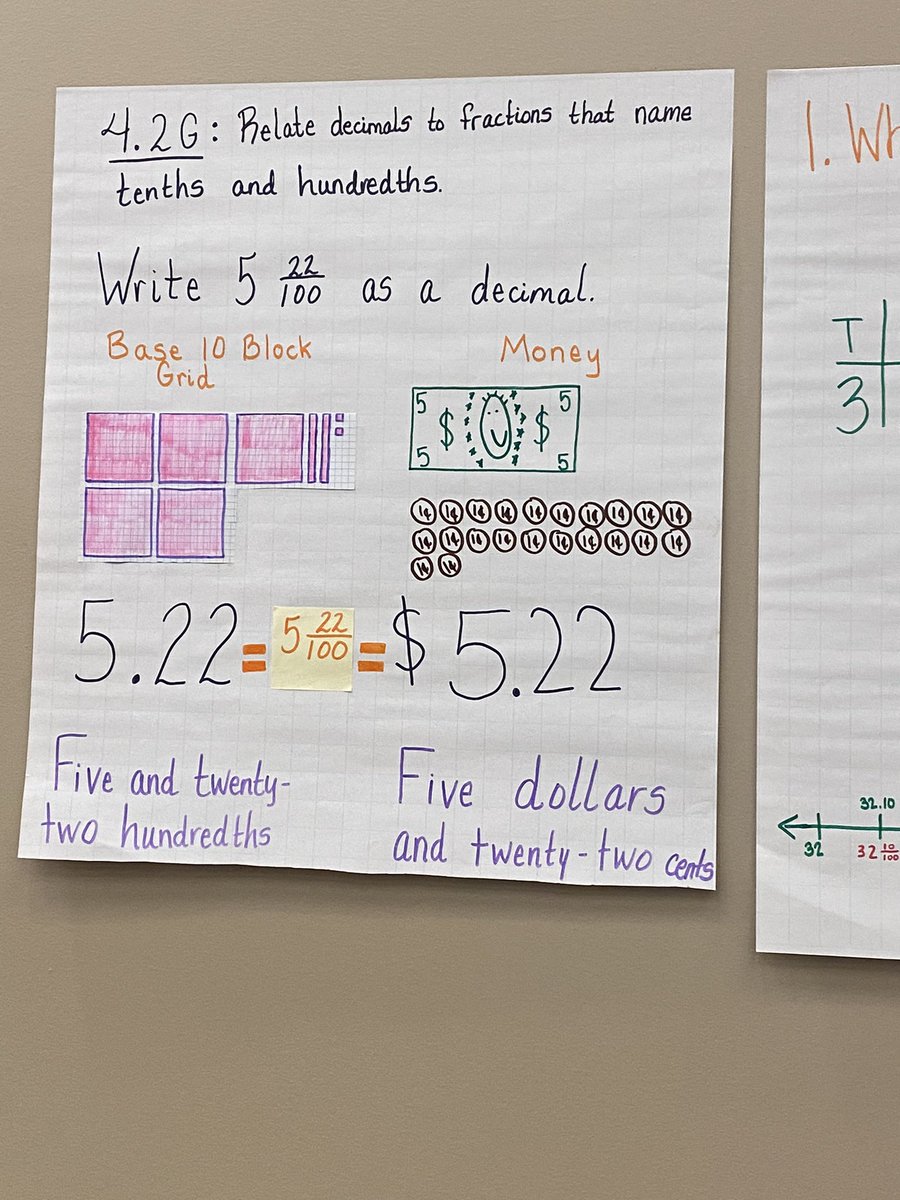 4.2G: Relate decimals to fractions that name
tenths and hundredths.
Write 5 22/100 as a decimal.
Base 10 Block
Grid
Money
5 5
$ $
5 5
1¢ 1¢ 1¢ 1¢ 1¢ 1¢ 1¢ 1¢ 1¢ 1¢
1¢ 1¢ 1¢ 1¢ 1¢ 1¢ 1¢ 1¢ 1¢ 1¢
1¢ 1¢
5.22 = 5 22/100 = $5.22
Five and twenty-
two hundredths
Five dollars
and twenty-two cents
1. Wh
T
3
32.10
32
32 10/100